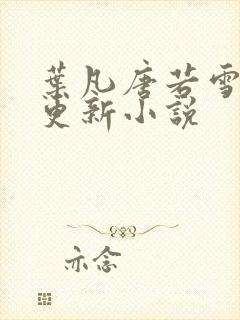 葉凡唐若雪
更新小說
亦念